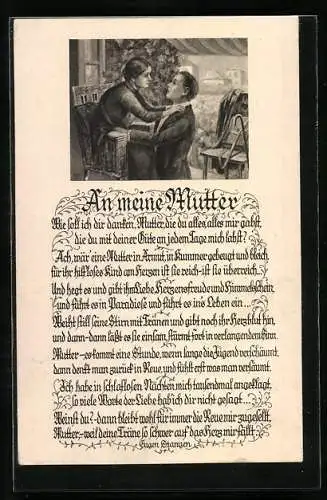 An meine Mutter
Wie soll ich dir danken, Mutter, die du alles, alles mir gabst,
die du mit deiner Güte an jedem Tage mich labst?
Ach, wär' eine Mutter in Armut, in Kummer gebeugt und bleich,
für ihr hilfloses Kind am Herzen ist sie reich – ist sie überreich.
Und hegt es und gibt ihm Liebe, Herzensfreude und Himmelsschein
und führt es in Paradiese und führt es ins Leben ein ...
Weiht still seine Stirn mit Tränen und gibt noch ihr Herzblut hin,
und dann – dann läßt es sie einsam, stürmt fort in verlangendem Sinn.
Mutter – es kommt eine Stunde, wenn lange die Jugend verschäumt,
dann denkt man zurück in Reue, und fühlt erst was man versäumt.
Ich habe in schlaflosen Nächten mich tausendmal angeklagt,
so viele Worte der Liebe hab ich dir nicht gesagt ...
Weinst du? – dann bleibt wohl für immer die Reue mir zugesellt,
Mutter, – weil deine Träne so schwer auf das Herz mir fällt.
Eugen